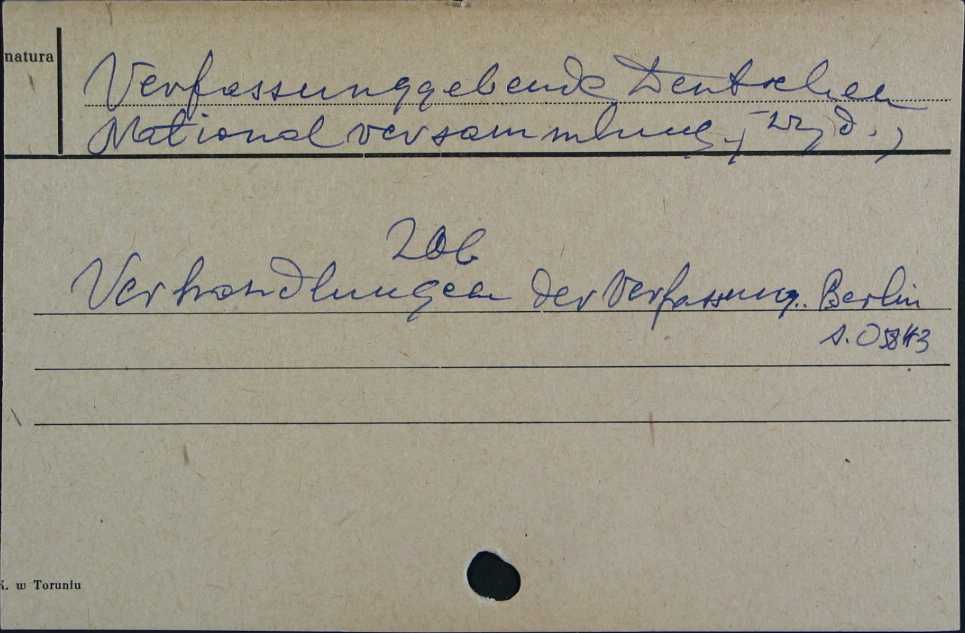 natura
Verfassunggebende Deutschen
Nationalversammlung, [wyd.]
Zob
Verhandlungen der Verfassung.. Berlin
s. 05843
K. w Toruniu